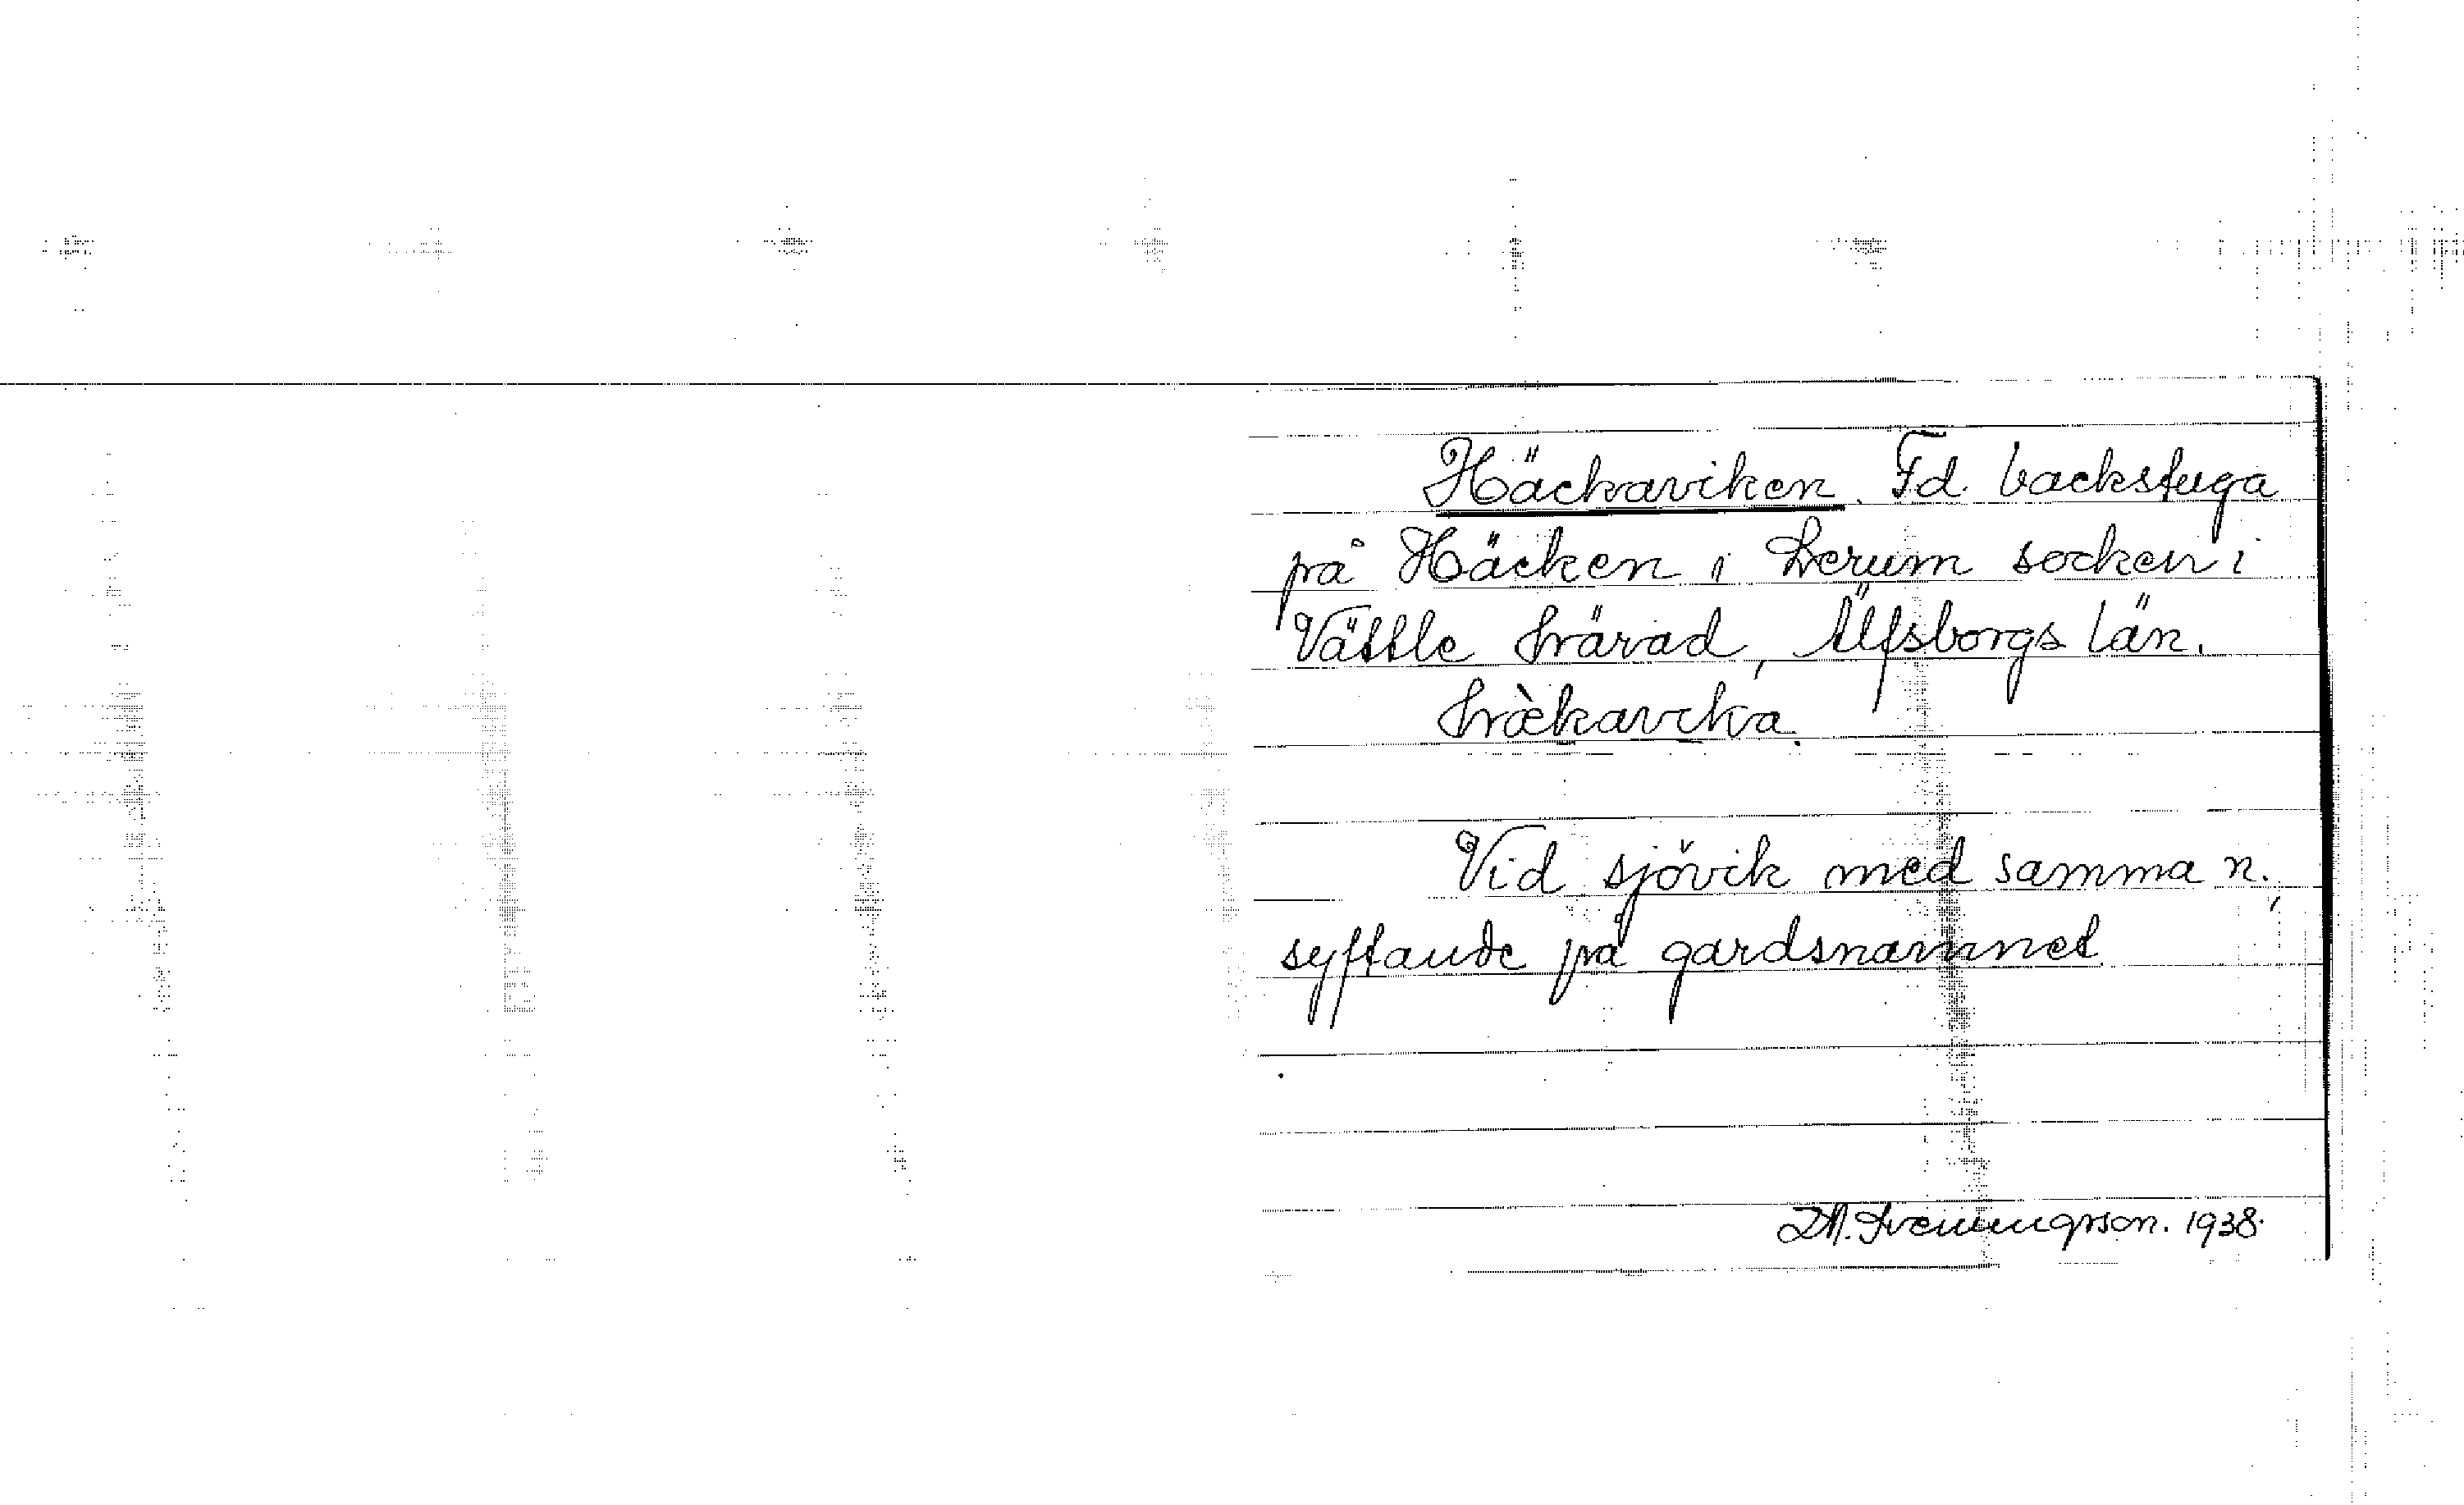 Häckaviken. Fd. backstuga
på Häcken i Lerum socken i
Vättle härad, Älfsborgs län.
hὰkavika.
Vid sjövik med samma n.,
syftande på gårdsnamnet
1938.